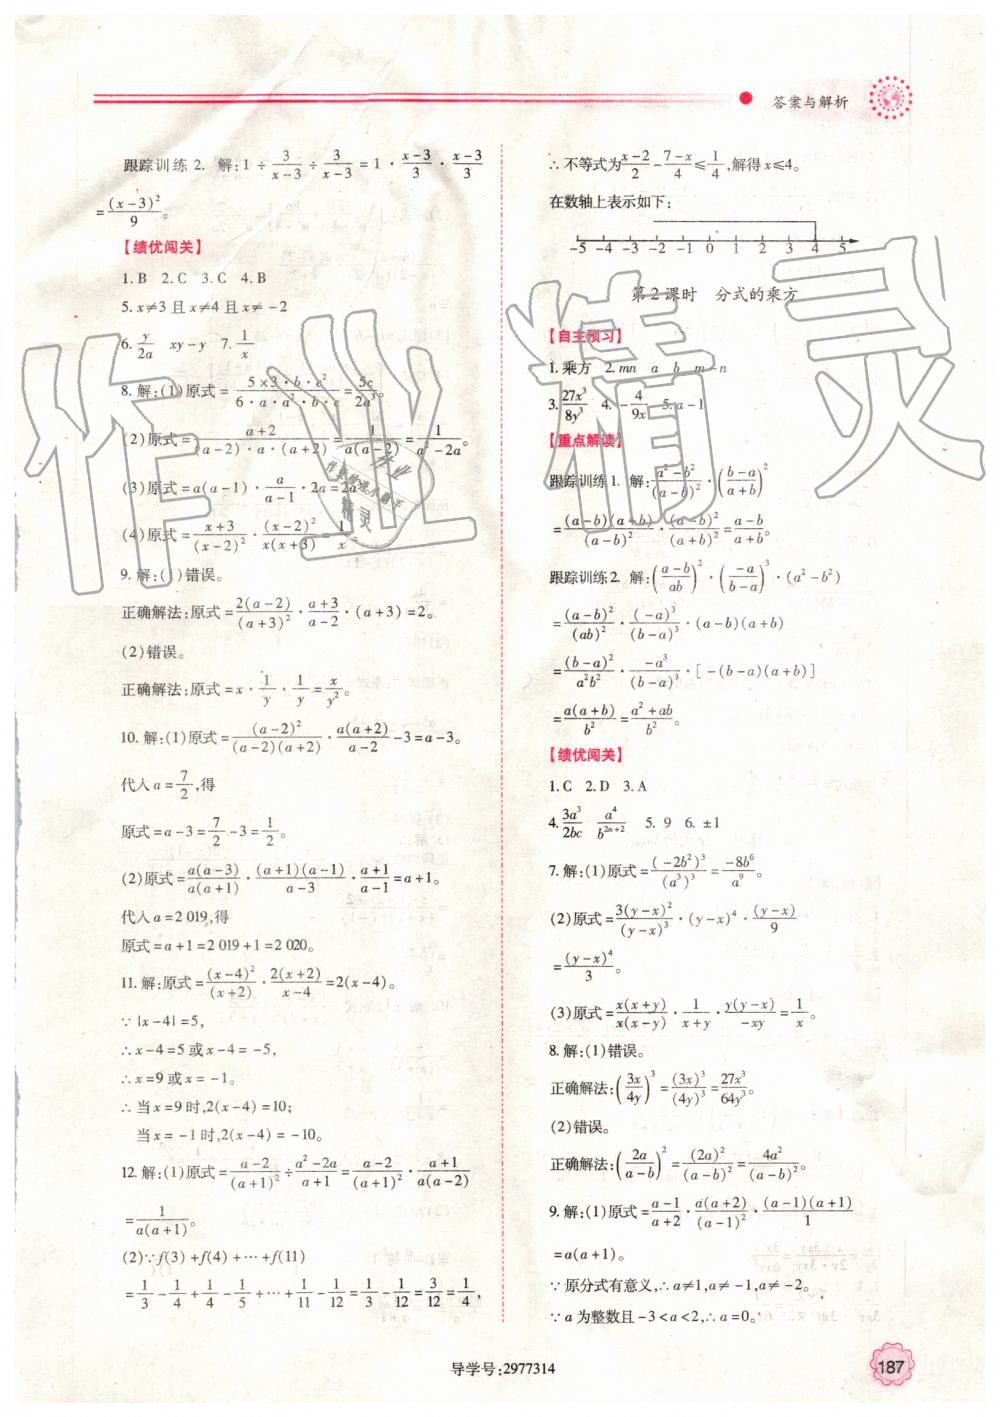 答案与解析
跟踪训练 2. 解:1÷3/(x-3)÷3/(x-3)=1·(x-3)/3·(x-3)/3
=(x-3)²/9。
【绩优闯关】
1.B 2.C 3.C 4.B
5.x≠3 且 x≠4 且 x≠-2
6.y/2a xy-y 7.1/x
8.解:(1)原式=(5×3·b·c²)/(6·a·a²·b·c)=5c/2a³。
(2)原式=(a+2)/((a-2)·a·(a+2))=1/(a(a-2))=1/(a²-2a)。
(3)原式=a(a-1)·a/(a-1)·2a=2a³
(4)原式=(x+3)/(x-2)²·(x-2)²/(x(x+3))=1/x。
9.解:(1)错误。
正确解法:原式=2(a-2)/(a+3)²·(a+3)/(a-2)·(a+3)=2。
(2)错误。
正确解法:原式=x·1/y·1/y=x/y²。
10.解:(1)原式=(a-2)²/((a-2)(a+2))·a(a+2)/(a-2)-3=a-3。
代入 a=7/2,得
原式=a-3=7/2-3=1/2。
(2)原式=a(a-3)/(a(a+1))·(a+1)(a-1)/(a-3)·(a+1)/(a-1)=a+1。
代入 a=2 019,得
原式=a+1=2 019+1=2 020。
11.解:原式=(x-4)²/(x+2)·2(x+2)/(x-4)=2(x-4)。
∵|x-4|=5,
∴x-4=5或x-4=-5,
∴x=9或x=-1。
∴当x=9时,2(x-4)=10;
当x=-1时,2(x-4)=-10。
12.解:(1)原式=(a-2)/(a+1)²÷(a²-2a)/(a+1)=(a-2)/(a+1)²·(a+1)/(a(a-2))
=1/(a(a+1))。
(2)∵f(3)+f(4)+…+f(11)
=1/3-1/4+1/4-1/5+…+1/11-1/12=1/3-1/12=3/12=1/4,
∴不等式为(x-2)/2-(7-x)/4≤1/4,解得x≤4。
在数轴上表示如下:
-5 -4 -3 -2 -1 0 1 2 3 4 5
第2课时 分式的乘方
【自主预习】
1.乘方 2.mn a b m-n
3.27x³/8y³ 4.-4/9x 5.a-1
【重点解读】
跟踪训练1. 解:(a²-b²)/(a-b)²·((b-a)/(a+b))²
=(a-b)(a+b)/(a-b)²·(a-b)²/(a+b)²=(a-b)/(a+b)。
跟踪训练2. 解:((a-b)/ab)²·(-a/(b-a))³·(a²-b²)
=(a-b)²/(ab)²·(-a)³/(b-a)³·(a-b)(a+b)
=(b-a)²/a²b²·-a³/(b-a)³·[-(b-a)(a+b)]
=a(a+b)/b²=(a²+ab)/b²。
【绩优闯关】
1.C 2.D 3.A
4.3a³/2bc a⁴/b²ⁿ⁺² 5. 9 6. ±1
7.解:(1)原式=(-2b²)³/(a³)³=-8b⁶/a⁹。
(2)原式=3(y-x)²/(y-x)³·(y-x)⁴·(y-x)/9
=(y-x)⁴/3。
(3)原式=x(x+y)/(x(x-y))·1/(x+y)·y(y-x)/-xy=1/x。
8.解:(1)错误。
正确解法:(3x/4y)³=(3x)³/(4y)³=27x³/64y³。
(2)错误。
正确解法:(2a/(a-b))²=(2a)²/(a-b)²=4a²/(a-b)²。
9.解:(1)原式=(a-1)/(a+2)·a(a+2)/(a-1)²·(a-1)(a+1)/1
=a(a+1)。
∵原分式有意义,∴a≠1,a≠-1,a≠-2。
∵a为整数且-3<a<2,∴a=0。
导学号:2977314
187
作业精灵
作业
精灵